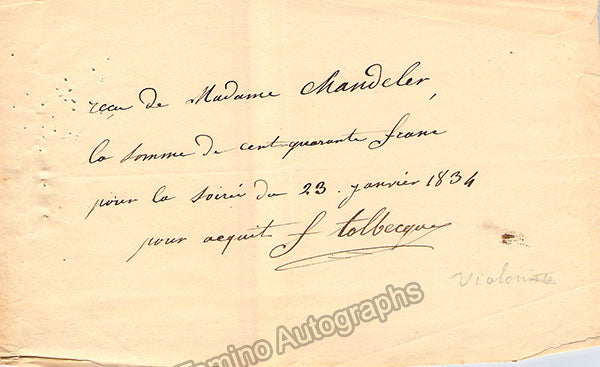 reçu de Madame Chandeler,
la somme de cent quarante franc
pour la soirée du 23. janvier 1834
pour acquit f tolbecque
Violoniste
Tamino Autographs